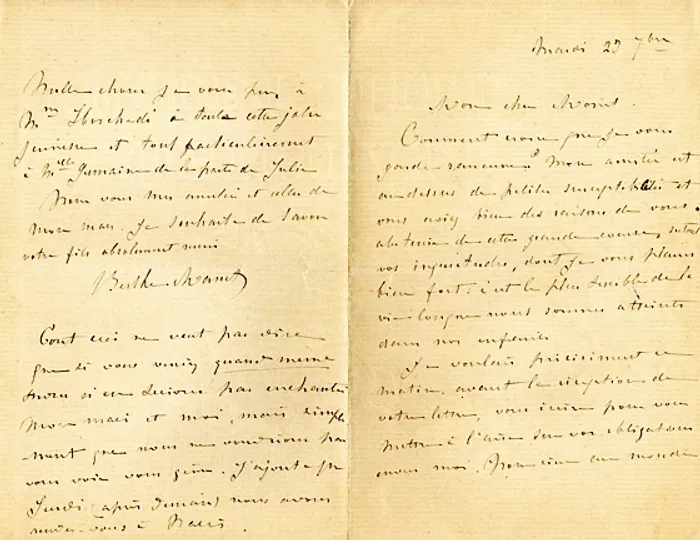 Mardi 23 7bre
Mon cher Monet.
Comment croire que je vous
garde rancune? Mon amitié est
au dessus de petites susceptibilités et
vous aviez bien des raisons de vous
abstenir de cette grande course, surtout
vos inquiétudes, dont je vous plains
bien fort: c'est le plus sensible de la
vie lorsque nous sommes atteints
dans nos enfants
Je voulais précisément ce
matin, avant la réception de
votre lettre, vous écrire pour vous
mettre à l'aise sur vos obligations
envers moi. Personne au monde
Mille choses je vous prie, à
Mme Hoschedé à toute cette jolie
jeunesse et tout particulièrement
à Mlle Germaine de la part de Julie
vous mes amitiés et celles de
mon mari. Je souhaite de savoir
votre fils absolument remis
Berthe Manet
Tout ceci ne veut pas dire
que si vous veniez quand même
nous n'en serions pas enchantés
Mon mari et moi, mais simple
-ment que nous ne voudrions pas
vous voir vous gêner. J'ajoute que
Jeudi (après demain) nous avons
rendez-vous à Paris.